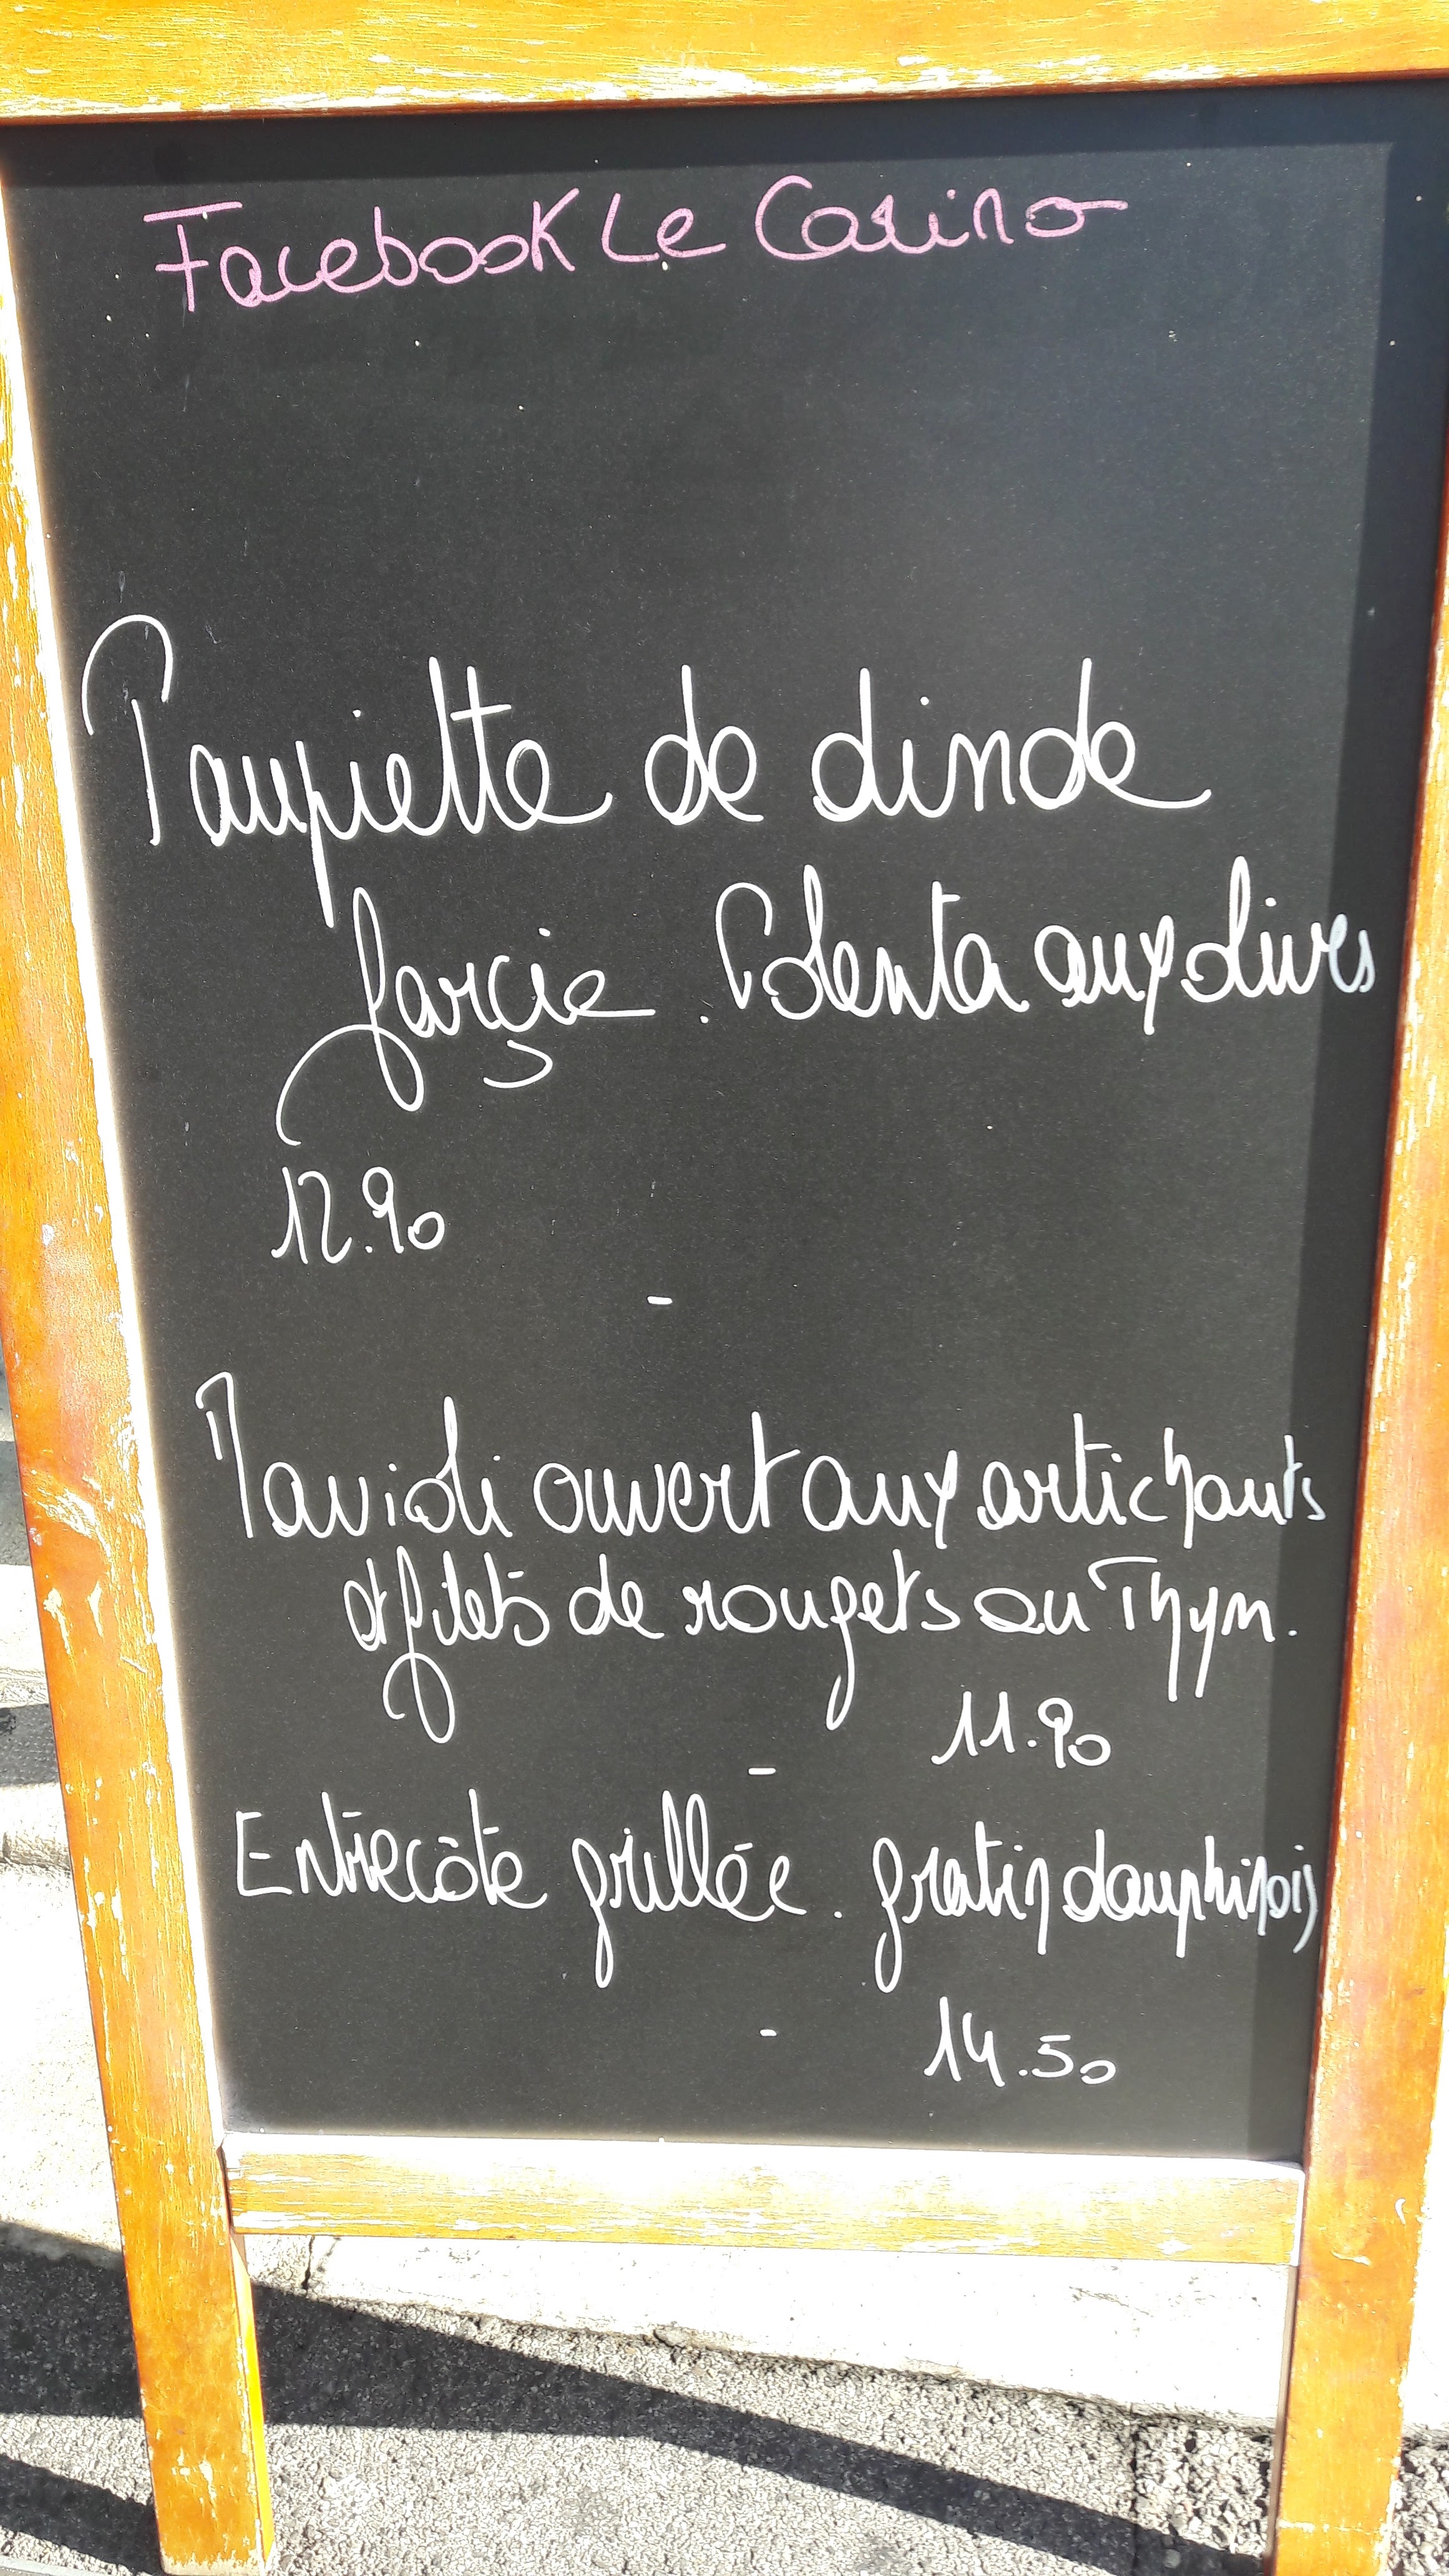 Facebook Le Casino
Paupiette de dinde
farçie. Polenta aux olives
12.90
-
Ravioli ouvert aux artichauts
et filets de rougets au Thym.
11.90
-
Entrecôte grillée. gratin dauphinois
14.50
-